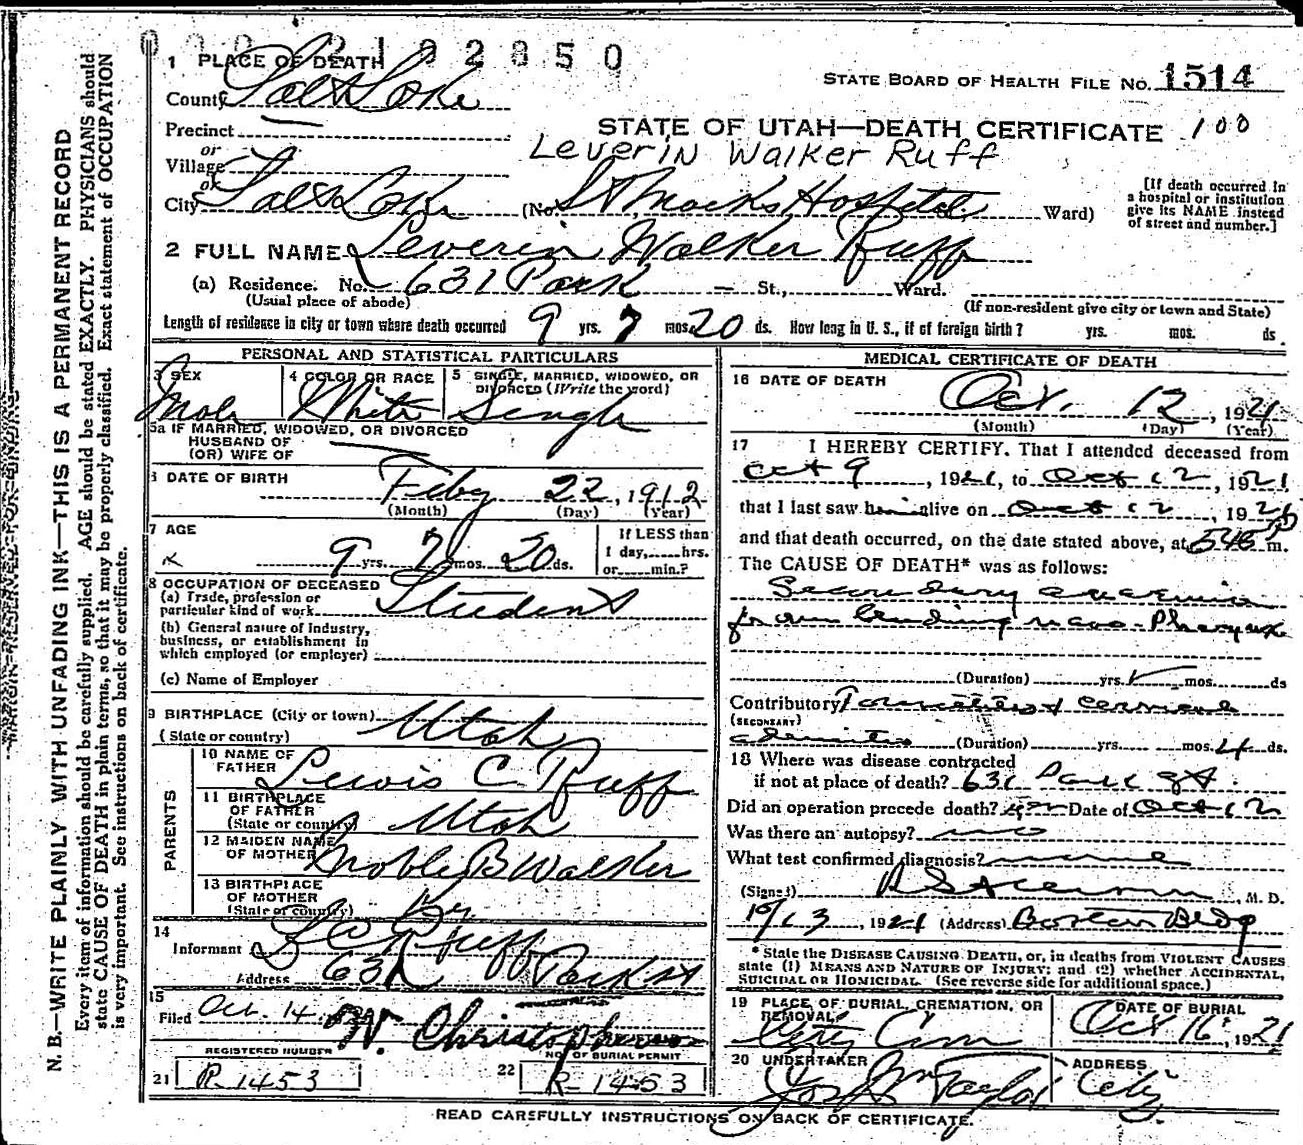 002192850
1 PLACE OF DEATH
STATE BOARD OF HEALTH FILE NO. 1514
County Salt Lake
STATE OF UTAH—DEATH CERTIFICATE 100
Precinct
Leverin Walker Ruff
or
Village
or
City Salt Lake (No. St Marks Hospital Ward)
[If death occurred in a hospital or institution give its NAME instead of street and number.]
2 FULL NAME Leverin Walker Ruff
(a) Residence. No. 631 Park St., Ward.
(Usual place of abode) (If non-resident give city or town and State)
Length of residence in city or town where death occurred 9 yrs. 7 mos. 20 ds. How long in U. S., if of foreign birth? yrs. mos. ds.
PERSONAL AND STATISTICAL PARTICULARS
3 SEX Male
4 COLOR OR RACE White
5 SINGLE, MARRIED, WIDOWED, OR DIVORCED (Write the word) Single
5a IF MARRIED, WIDOWED, OR DIVORCED
HUSBAND OF
(OR) WIFE OF
6 DATE OF BIRTH Feby 22, 1912
(Month) (Day) (Year)
7 AGE 9 yrs. 7 mos. 20 ds.
If LESS than 1 day, hrs. or min.?
8 OCCUPATION OF DECEASED
(a) Trade, profession or particular kind of work Student
(b) General nature of Industry, business, or establishment in which employed (or employer)
(c) Name of Employer
9 BIRTHPLACE (City or town)
(State or country) Utah
PARENTS
10 NAME OF FATHER Lewis C. Ruff
11 BIRTHPLACE OF FATHER (State or country) Utah
12 MAIDEN NAME OF MOTHER Mable B Walker
13 BIRTHPLACE OF MOTHER (State or country)
14
Informant L C Ruff
Address 631 Park St
15
Filed Oct. 14, W. Christopherson
REGISTERED NUMBER
21 R-1453
NO. OF BURIAL PERMIT
22 R-1453
MEDICAL CERTIFICATE OF DEATH
16 DATE OF DEATH Oct. 12, 1921
(Month) (Day) (Year)
17 I HEREBY CERTIFY, That I attended deceased from
Oct 9, 1921, to Oct 12, 1921,
that I last saw him alive on Oct 12, 1921
and that death occurred, on the date stated above, at 545 P m.
The CAUSE OF DEATH* was as follows:
Secondary anaemia
from bleeding naso-Pharynx
(Duration) yrs. mos. ds
Contributory Tonsilitis & cervical
(SECONDARY)
adenitis (Duration) yrs. mos. 4 ds.
18 Where was disease contracted
if not at place of death? 631 Park St.
Did an operation precede death? yes Date of Oct 12
Was there an autopsy? no
What test confirmed diagnosis?
(Signed) M. D.
10/13, 1921 (Address) Boston Bldg
* State the DISEASE CAUSING DEATH, or, in deaths from VIOLENT CAUSES state (1) MEANS AND NATURE OF INJURY; and (2) whether ACCIDENTAL, SUICIDAL OR HOMICIDAL. (See reverse side for additional space.)
19 PLACE OF BURIAL, CREMATION, OR REMOVAL City Cem
DATE OF BURIAL Oct 16, 1921
20 UNDERTAKER Jos Wm Taylor
ADDRESS City
READ CAREFULLY INSTRUCTIONS ON BACK OF CERTIFICATE.
MARGIN RESERVED FOR BINDING
N. B.—WRITE PLAINLY WITH UNFADING INK—THIS IS A PERMANENT RECORD
Every item of information should be carefully supplied. AGE should be stated EXACTLY. PHYSICIANS should
state CAUSE OF DEATH in plain terms, so that it may be properly classified. Exact statement of OCCUPATION
is very important. See instructions on back of certificate.